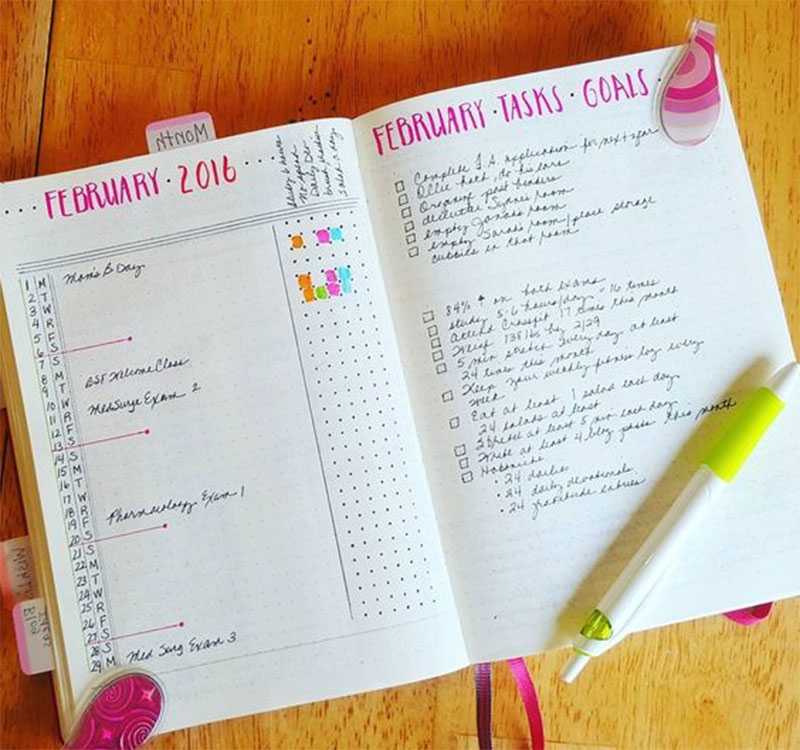 MONTH
FEBRUARY · 2016
study 6 hours
No spend
Daily Do
2 salad a day
1 M Mom's B Day
2 T
3 W
4 R
5 F
6 S
7 S
8 M
9 T BSF Welcome Class
10 W
11 R MedSurge Exam 2
12 F
13 S
14 S
15 M
16 T
17 W
18 R
19 F Pharmacology Exam 1
20 S
21 S
22 M
23 T
24 W
25 R
26 F
27 S
28 S
29 M Med Surg Exam 3
Blog
FEBRUARY · TASKS · GOALS
Complete F.A. application for next year
Ollie bath, do his ears
Organize post headers
declutter Sydnee room
empty Jonas room
empty Sarah room/place storage
cubbies in that room
84% ↑ on both exams
study 5-6 hours/day · 16 times
Attend Crossfit 17 times this month
Weigh 138 lbs by 2/29
5 min stretch every day at least
24 times this month
Keep your weekly fitness log every
week
Eat at least 1 salad each day
24 salads at least
Write at least 5 min each day
Write at least 4 blog posts this month
Hobonichi
· 24 dailies
· 24 daily devotionals
· 24 gratitude entries